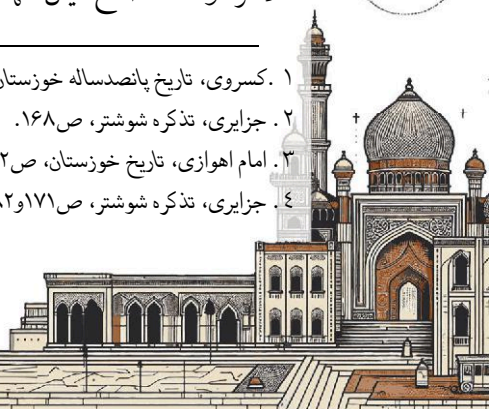 ۱. کسروی، تاریخ پانصدساله خوزستان
۲. جزایری، تذکره شوشتر، ص۱۶۸.
۳. امام اهوازی، تاریخ خوزستان، ص۲
٤. جزایری، تذکره شوشتر، ص۱۷۱و۸۲